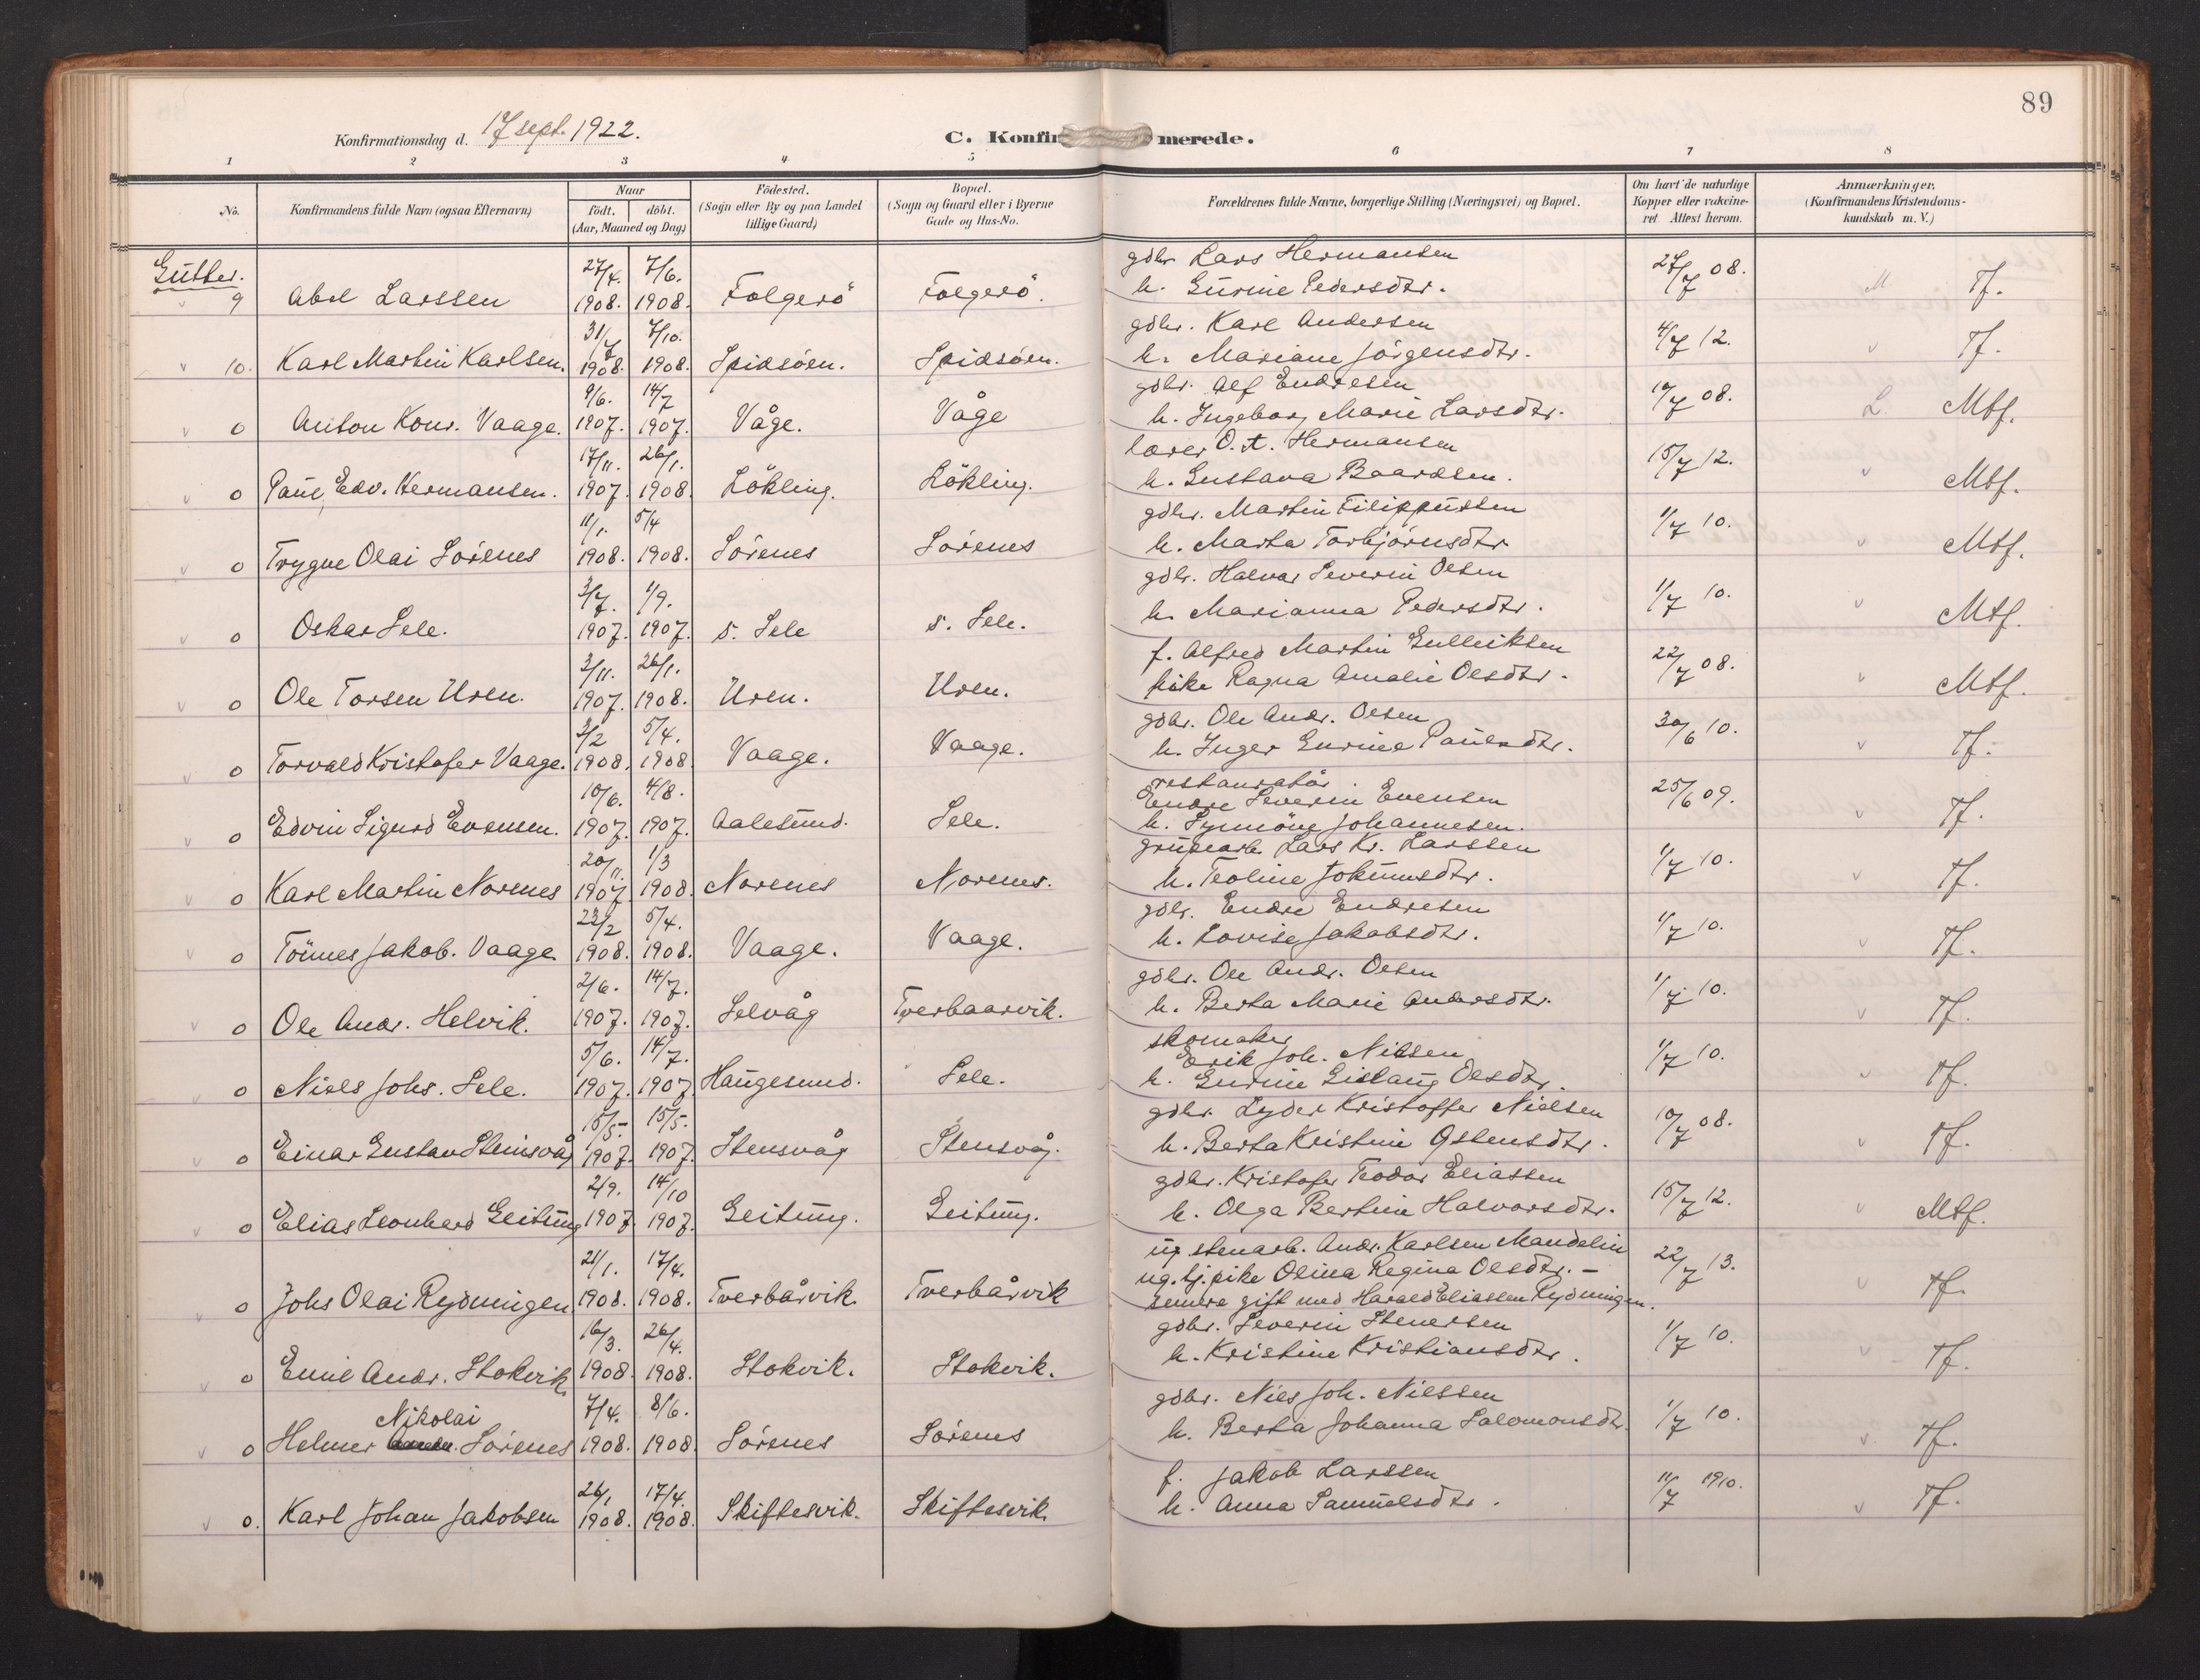 89
Konfirmationsdag d. 17 sept. 1922.
C. Konfir merede.
1 2 3 4 5 6 7 8
No.
Konfirmandens fulde Navn (ogsaa Efternavn)
Naar
födt. döbt.
(Aar, Maaned og Dag)
Födested.
(Sogn eller By og paa Landet
tillige Gaard)
Bopæl.
(Sogn og Gaard eller i Byerne
Gade og Hus-No.
Forældrenes fulde Navne, borgerlige Stilling (Næringsvei) og Bopæl.
Om havt de naturlige
Kopper eller vakcine-
ret. Attest herom.
Anmærkninger.
(Konfirmandens Kristendoms-
kundskab m. V.)
Gutter.
9 Abel Larssen 27/4. 1908. 7/6. 1908. Folgerö Folgerö. gdbr. Lars Hermansen
h. Gurine Pedersdtr. 27/7 08. M. Tf.
10. Karl Martin Karlsen. 31/7 1908. 7/10. 1908. Spidsöen. Spidsöen. gdbr. Karl Andersen
h. Mariane Jörgensdtr. 4/7 12. " Tf.
0 Anton Konr. Vaage. 9/6. 1907. 14/7 1907. Våge. Våge gdbr. Alf Endresen
h. Ingeborg Marie Larsdtr. 08. L. Mtf.
0 Paul Edv. Hermansen. 17/11. 1907. 26/1. 1908. Lökling. Lökling. lærer O. A. Hermansen
h. Gustava Baardsen. 15/7 12. " Mtf.
0 Trygve Olai Sörenes 11/1. 1908. 5/4 1908. Sörenes Sörenes gdbr. Martin Filippussen
h. Marta Torbjörnsdtr. 1/7 10. " Mtf.
0 Oskar Sele. 3/7. 1907. 1/9. 1907. s. Sele s. Sele. gdbr. Halvor Severin Olsen
h. Marianna Pedersdtr. 1/7 10. " Mtf.
0 Ole Torsen Uren. 3/11. 1907. 26/1. 1908. Uren. Uren. f. Alfred Martin Gulleiksen
pike Ragna Amalie Olsdtr. 22/7 08. " Mtf.
0 Torvald Kristofer Vaage. 3/2 1908. 5/4. 1908. Vaage. Vaage. gdbr. Ole Andr. Olsen
h. Inger Gurine Paulsdtr. 30/6 10. " Tf.
0 Edvin Sigurd Evensen. 10/6. 1907. 4/8. 1907. Aalesund. Sele. restauratör
Endre Severin Evensen
h. Synnöve Johannesen. 25/6 09. " Tf.
0 Karl Martin Norenes 20/11. 1907. 1/3 1908. Norenes Norenes. grubearb. Lars Kr. Larssen
h. Teoline Jokumsdtr. 1/7 10. " Tf.
0 Tönnes Jakob. Vaage. 23/2 1908. 5/4. 1908. Vaage. Vaage. gdbr. Endre Endresen
h. Lovise Jakobsdtr. 1/7 10. " Tf.
0 Ole Andr. Helvik. 2/6. 1907. 14/7. 1907. Selvåg Tverbaarvik. gdbr. Ole Andr. Olsen
h. Berta Marie Andersdtr. 1/7 10. " Tf.
0 Niels Johs. Sele. 5/6. 1907. 14/7. 1907. Haugesund. Sele. skomaker
Erik Joh. Nilsen
h. Gurine Gislaug Olsdtr. 1/7 10. " Tf.
0 Einar Gustav Stensvåg 15/5. 1907. 15/5. 1907. Stensvåg Stensvåg. gdbr. Lyder Kristoffer Nielsen
h. Berta Kristine Ostensdtr. 10/7 08. " Tf.
0 Elias Leonhard Geitung 2/9. 1907. 14/10 1907. Geitung. Geitung. gdbr. Kristofer Teodor Eliassen
h. Olga Bertine Halvorsdtr. 15/7 12. " Mtf.
0 Johs Olai Rydningen 21/1. 1908. 17/4. 1908. Tverbårvik. Tverbårvik ug. stenarb. Andr. Karlsen Mandelin
ug. tj. pike Olina Regina Olsdtr. –
senere gift med Harald Eliassen Rydningen. 22/7 13. " Tf.
0 Emil Andr. Stokvik. 16/3. 1908. 26/4. 1908. Stokvik. Stokvik. gdbr. Severin Stenersen
h. Kristine Kristiansdtr. 1/7 10. " Tf.
0 Helmer Nikolai Sörenes 7/4. 1908. 8/6. 1908. Sörenes Sörenes gdbr. Niels Joh. Nielsen
h. Berta Johanna Salomonsdtr. 1/7 10. " Tf.
0. Karl Johan Jakobsen 26/1 1908. 17/4. 1908. Skiftesvik. Skiftesvik. f. Jakob Larssen
h. Anna Samuelsdtr. 11/7 1910. " Tf.